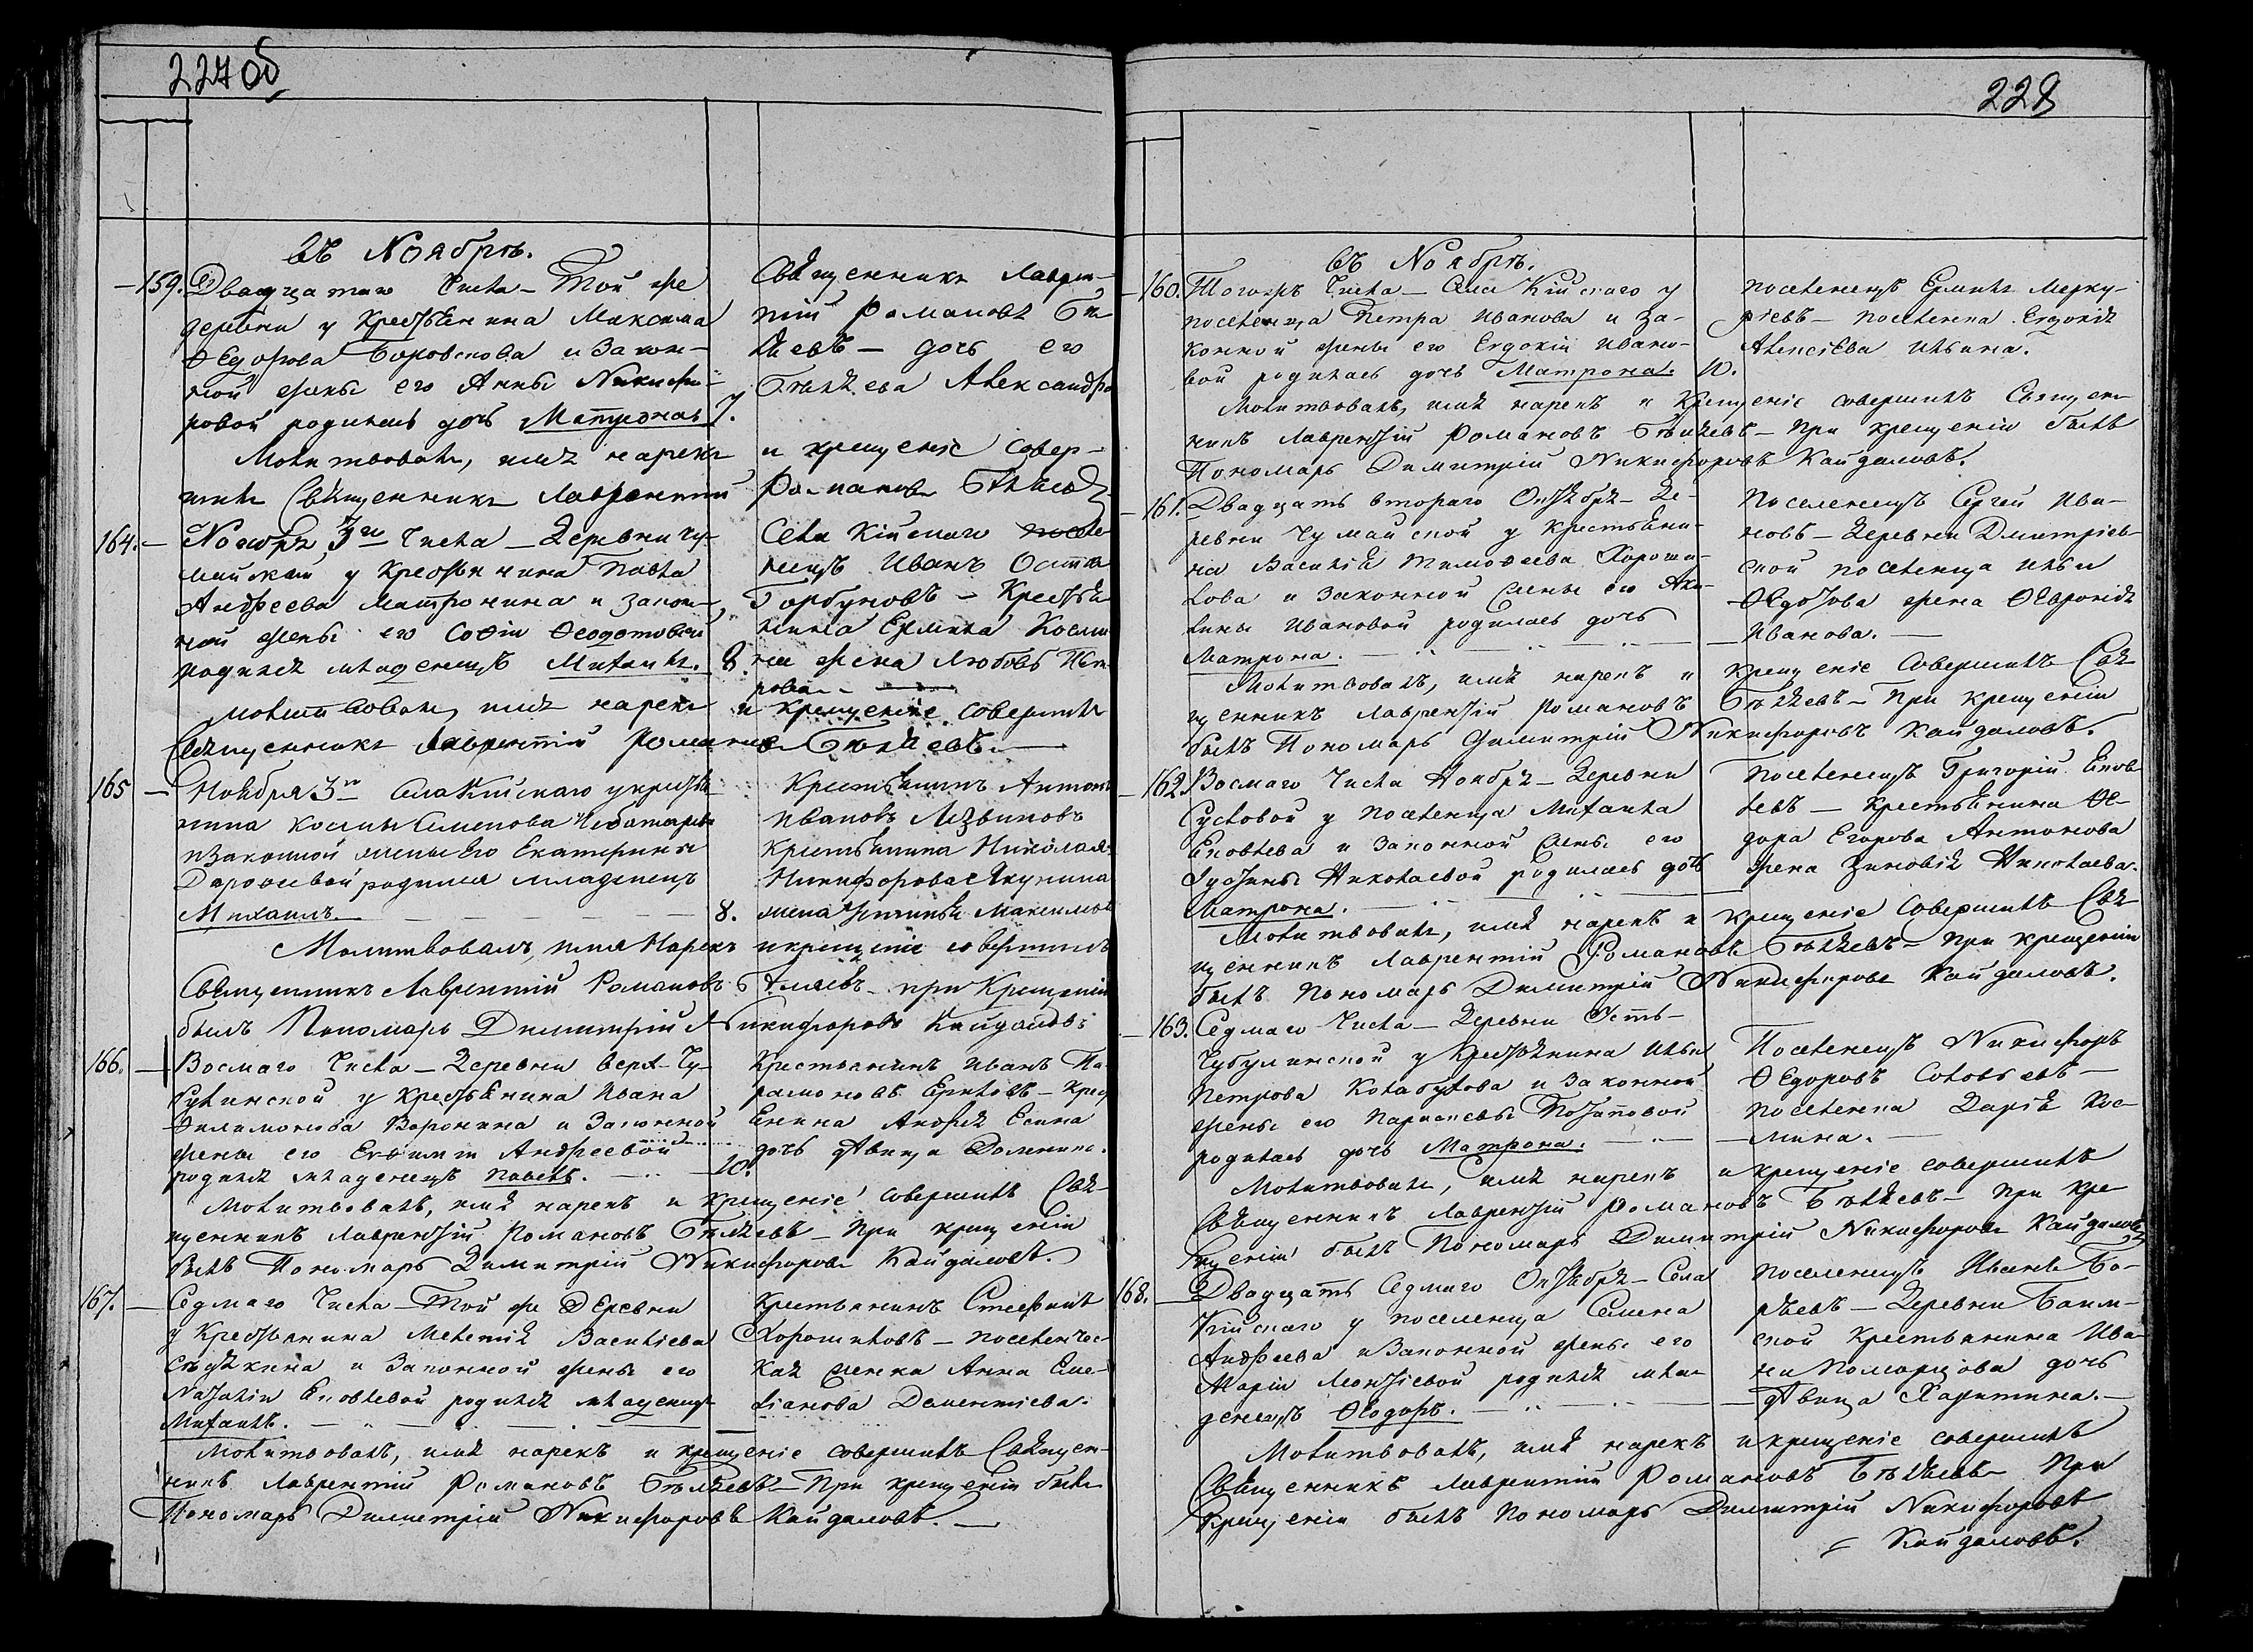 227 об
въ Ноябрѣ.
159. Двадцатаго Числа – Той же
деревни у Крестьянина Максима
Ѳедорова Боровскова и закон-
ной жены его Анны Никифо-
ровой родилась дочь Матрона. 7.
Священникъ Лаврен-
тій Романовъ Бѣ-
ляевъ – дочь его
Бѣляева Александра
Молитвовалъ, имя нарекъ и крещеніе совер-
шилъ Священникъ Лаврентий Романовъ Бѣляевъ
164. – Ноября 3го Числа – Деревни Чу-
майской у Крестьянина Павла
Андреева Матронина и закон-
ной жены его Софіи Ѳеодотовой
родился младенецъ Михаилъ. 8
Села Кійскаго посе-
ленецъ Иванъ
Горбуновъ – Крестья-
нина Ермила Косми-
на жена Любовь Пет-
рова
молитвовалъ, имя нарекъ и крещеніе совершилъ
Священникъ Лаврентій Романовъ Бѣляевъ.
165 – Ноября 3го Села Кійскаго у кресть-
нина Космы Семенова Чеботарева
и законной жены его Екатерины
Дороѳеевой родился младенецъ
Михаилъ. 8.
Крестьянинъ Антонъ
Ивановъ Лязвиновъ
крестьянина Николая
Никифорова Якунина
жена Максимова
Молитвовалъ, имя нарекъ и крещеніе совершилъ
Священникъ Лаврентій Романовъ Бѣляевъ – при Крещеніи
былъ Пономарь Димитрій Никифоровъ Кайдаловъ.
166. – Восмаго Числа – Деревни Верх-Чу-
булинской у Крестьянина Ивана
Филимонова Воронина и Законной
жены его Евѳиміи Андреевой
родился младенецъ Павелъ. 10.
Крестьянинъ Иванъ Па-
рамоновъ Ермолов – крес
Енина Андрея Есина
дочь дѣвица Домнина.
Молитвовалъ, имя нарекъ и крещеніе совершилъ Свя-
щенникъ Лаврентій Романовъ Бѣляевъ – При крещеніи
былъ Пономарь Димитрій Никифоровъ Кайдаловъ.
167. – Седмаго Числа – Той же Деревни
у Крестьянина Мелетія Василіева
Сѣдѣкина и Законной жены его
Наталіи Яковлевой родился младенецъ
Михаилъ.
Крестьянинъ Стефанъ
Хорошиловъ – поселенчес-
кая женка Анна Еме-
ліанова Дементіева.
Молитвовалъ, имя нарекъ и крещеніе совершилъ Священ-
никъ Лаврентій Романовъ Бѣляевъ – При крещеніи былъ
Пономарь Димитрій Никифоровъ Кайдаловъ.
228
въ Ноябрѣ.
160. Тогожъ Числа – Села Кійскаго у
поселенца Петра Иванова и за-
конной жены его Евдокіи Ивано-
вой родилась дочь Матрона. 10.
поселенецъ Ермилъ Мерку-
ріевъ – поселенка Евдокія
Алексіева Ильина.
Молитвовалъ, имя нарекъ и Крещеніе совершилъ Священ-
никъ Лаврентій Романовъ Бѣляевъ – При крещеніи былъ
Пономарь Димитрій Никифоровъ Кайдаловъ.
161. Двадцать втораго Октября – Де-
ревни Чумайской у Крестьяни-
на Василія Тимоѳеева Хороши-
лова и Законной жены его Аку-
лины Ивановой родилась дочь
Матрона.
Поселенецъ Сергей Ива-
новъ – Деревни Дмитріев-
ской поселенца Ильи
Ѳедотова жена Ѳевронія
Иванова.
Молитвовалъ, имя нарекъ и крещеніе Совершилъ Свя-
щенникъ Лаврентій Романовъ Бѣляевъ – При крещеніи
былъ Пономарь Димитрій Никифоровъ Кайдаловъ.
162. Восмаго Числа Ноября – Деревни
Сусловой у Поселенца Михаила
Яковлева и Законной жены его
Устины Николаевой родилась дочь
Матрона.
Поселенецъ Григорій Яков-
левъ – крестьянина Ѳе-
дора Егорова Антонова
жена Зиновія Николаева.
Молитвовалъ, имя нарекъ и крещеніе Совершилъ Свя-
щенникъ Лаврентій Романовъ Бѣляевъ – при крещеніи
былъ Пономарь Димитрій Никифоровъ Кайдаловъ.
163. Седмаго Числа – Деревни Усть-
Чубулинской у Крестьянина Ильи
Петрова Колабухова и Законной
жены его Параскевы Потаповой
родилась дочь Матрона.
Поселенецъ Никифоръ
Ѳедоровъ Соловьевъ –
поселенка Дарья Кос-
мина.
Молитвовалъ, имя нарекъ и крещеніе совершилъ
Священникъ Лаврентій Романовъ Бѣляевъ – При кре-
щеніи былъ Пономарь Димитрій Никифоровъ Кайдаловъ
168. Двадцать Седмаго Октября – Села
Кійскаго у поселенца Семена
Андреева и Законной жены его
Маріи Леонтіевой родился мла-
денецъ Ѳеодоръ.
поселенецъ Иванъ Бо-
ревъ – Деревни Баим-
ской крестьянина Ива-
на Поморцова дочь
дѣвица Харитина. –
Молитвовалъ, имя нарекъ и крещеніе совершилъ
Священникъ Лаврентій Романовъ Бѣляевъ – При
Крещеніи былъ Пономарь Димитрій Никифоровъ
Кайдаловъ.